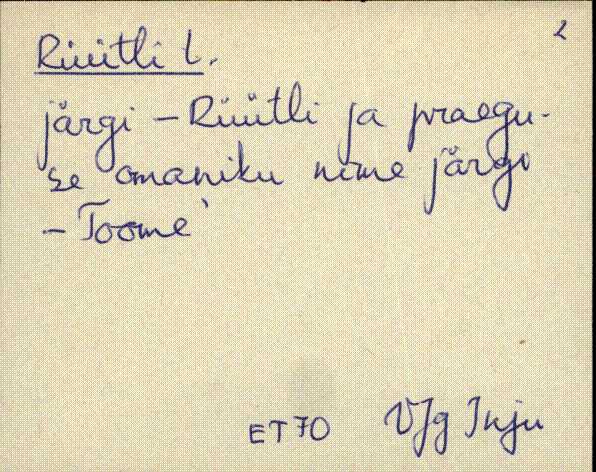 2
Rüütli t.
järgi – Rüütli ja praegu-
se omaniku nime järgi
– Toome`
ET70 VJg Inju